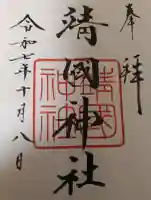 奉拝
靖國神社
靖國
神社
令和七年十月八日